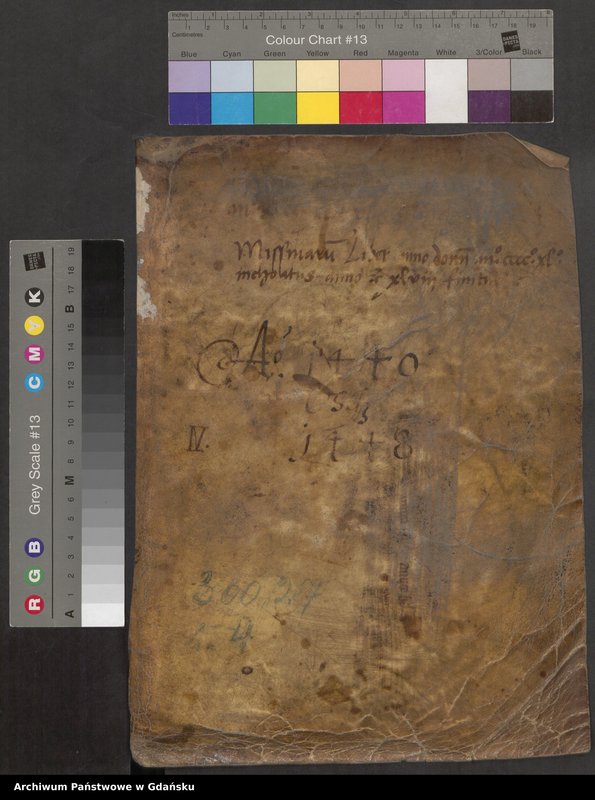 Inches 1 2 3 4 5 6 7
Centimetres 1 2 3 4 5 6 7 8 9 10 11 12 13 14 15 16 17 18 19
Colour Chart #13
Blue Cyan Green Yellow Red Magenta White 3/Color Black
Missivarũ Liber anno domĩ mº ccccº xlº
incholatus anno xlviij finitus
Aº. 1440
bis
IV. 1448
300,27
4
R G B Grey Scale #13 C M Y K
A 1 2 3 4 5 6 M 8 9 10 11 12 13 14 15 B 17 18 19
Archiwum Państwowe w Gdańsku